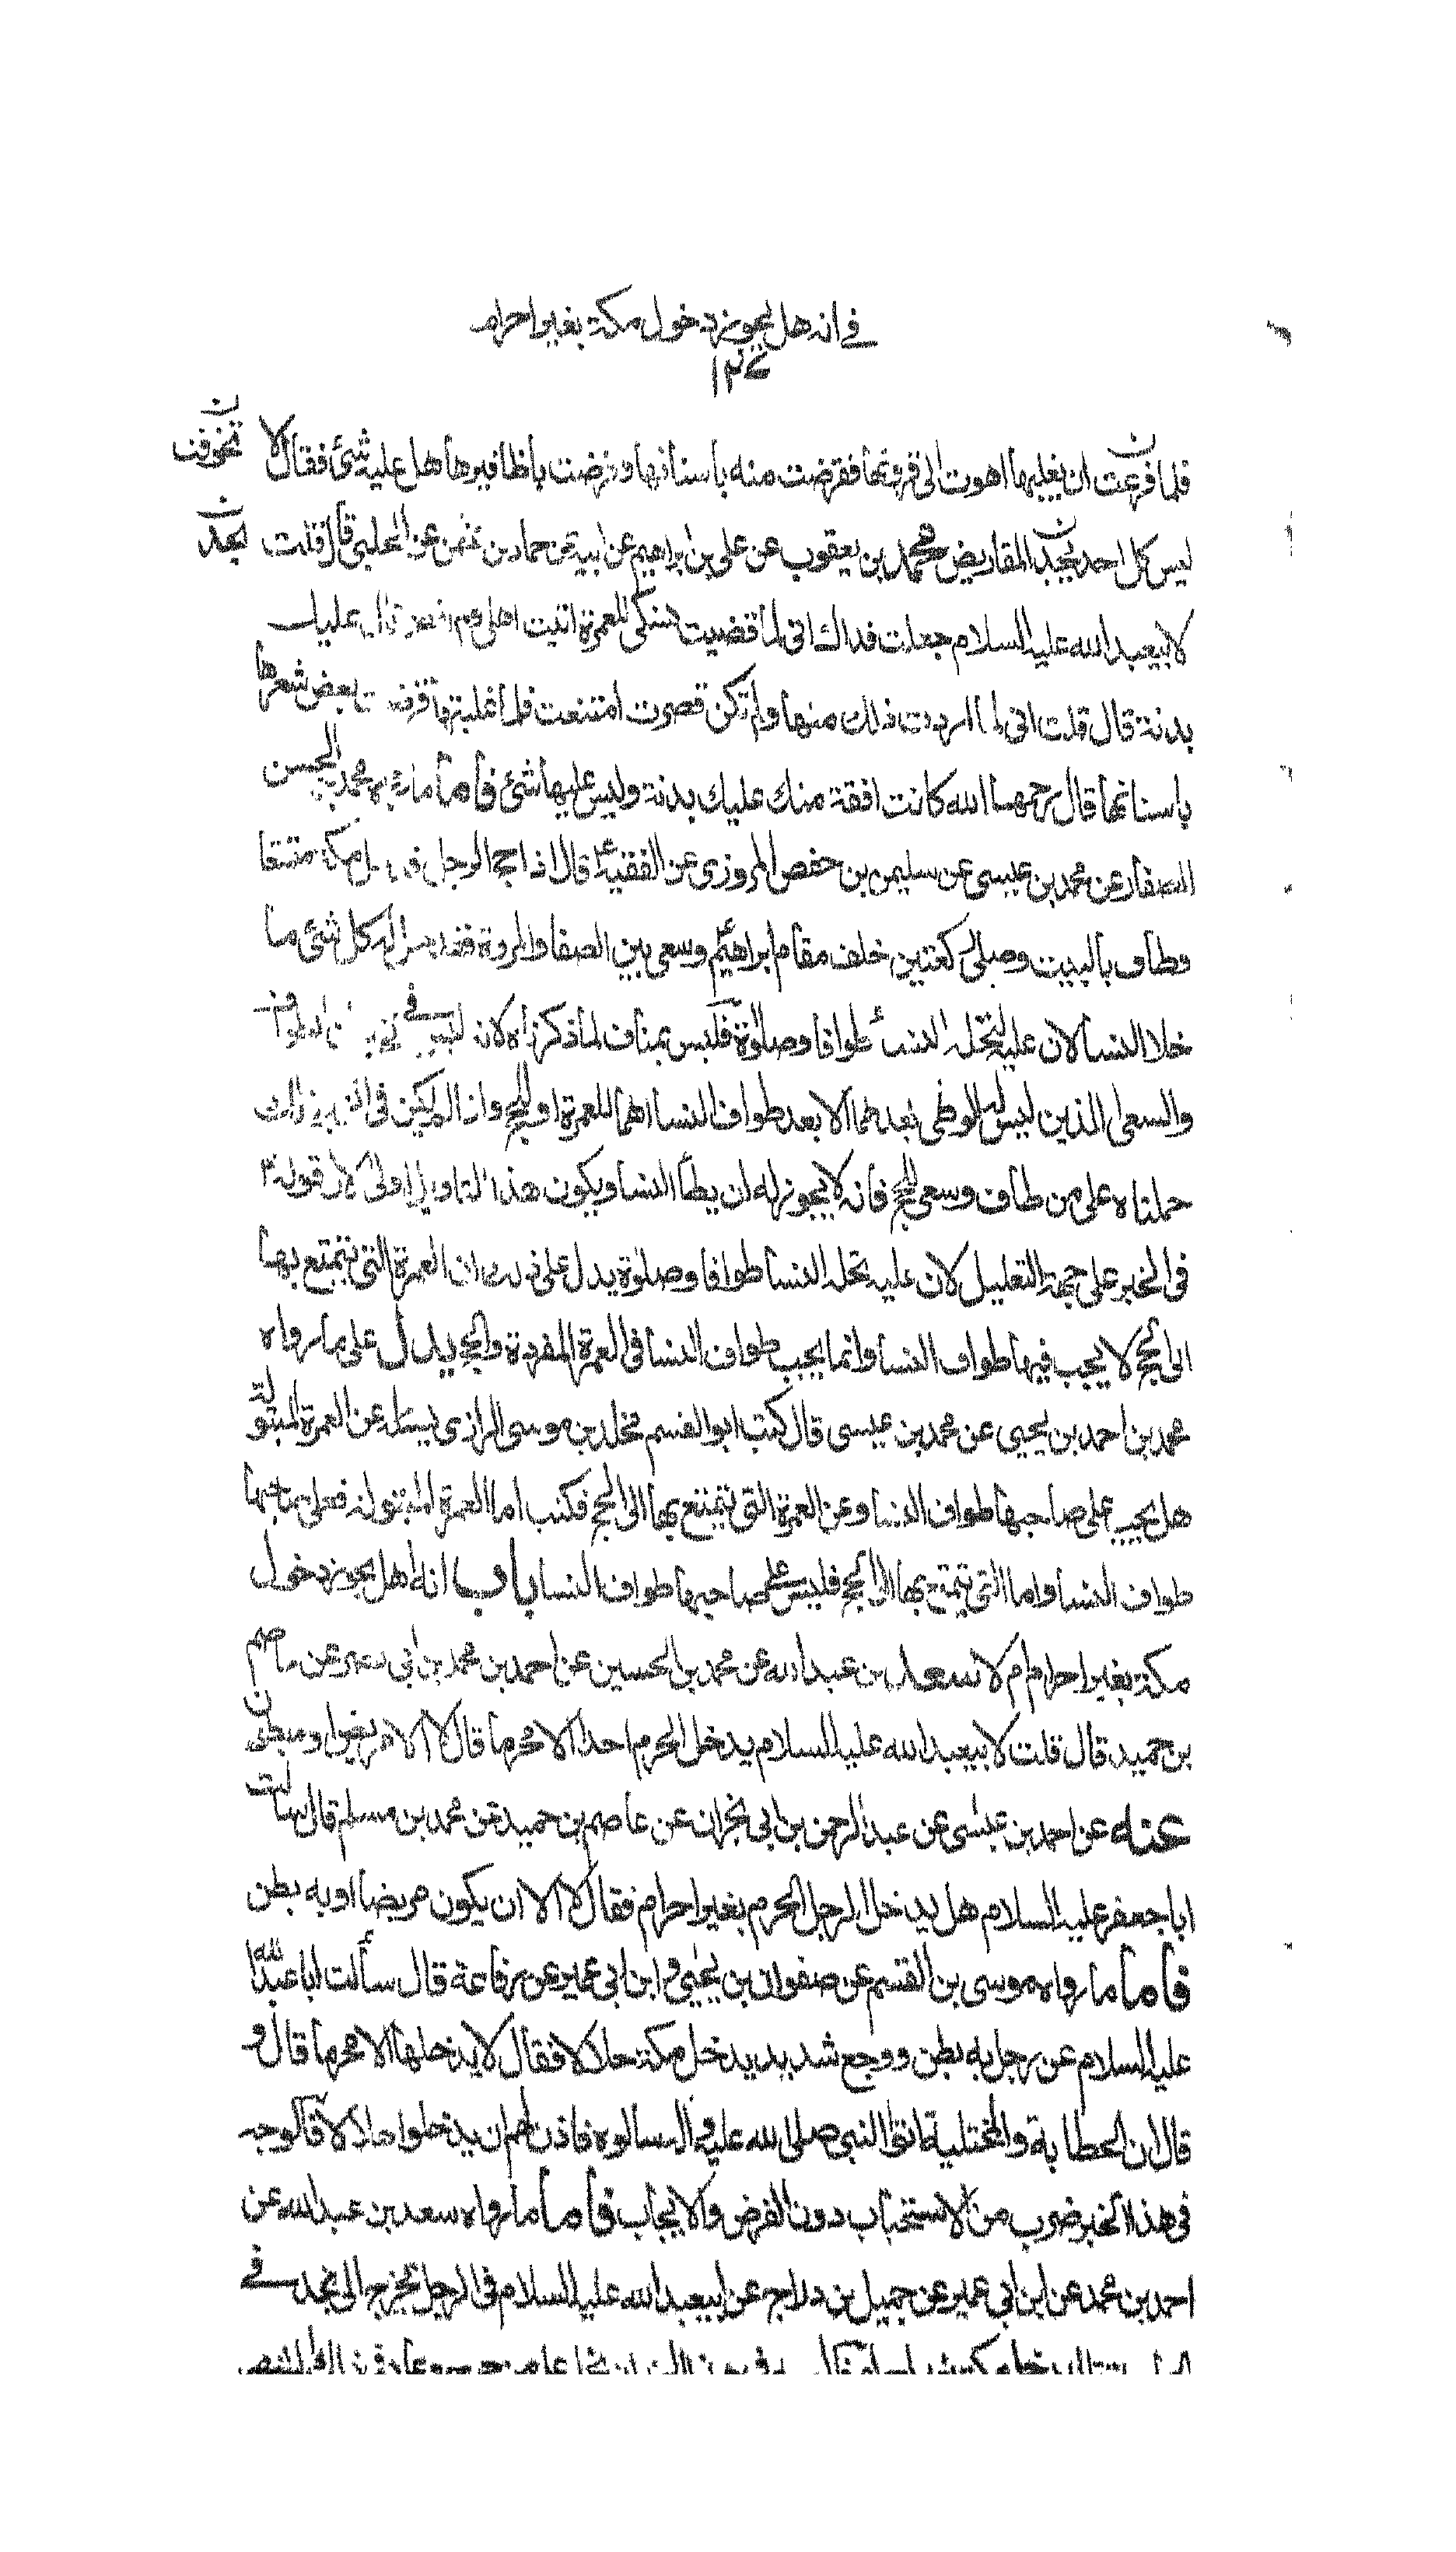 في انه هل يجوز دخول مكة بغير احرام
فلما فرغت ان يغلبها اهوت الى قرونها فقرضت منه باسنانها وقرضت باظافيرها هل عليه شئ فقال لا تخوفت
ليس كل احد يجد المقاريض محمد بن يعقوب عن علي بن ابراهيم عن ابيه عن حماد بن عثمن عن الحلبي قال قلت يجد
لابيعبد الله عليه السلام جعلت فداك اني لما قضيت نسكي للعمرة اتيت اهلي ولم اقصر قال عليك
بدنة قال قلت اني لما اردت ذلك منها ولم تكن قصرت امتنعت فلما غلبتها قرضت بعض شعرها
باسنانها قال رحمها الله كانت افقه منك عليك بدنة وليس عليها شئ فأما ما رواه محمد بن الحسن
الصفار عن محمد بن عيسى عن سليمن بن حفص المروزي عن الفقيه ع قال اذا حج الرجل فدخل مكة متمتعا
وطاف بالبيت وصلى ركعتين خلف مقام ابراهيم وسعى بين الصفا والمروة فقد حل له كل شئ ما
خلا النسا لان عليه لتحلة النساء طوافا وصلوة فليس بمناف لما ذكرناه لانه ليس في الخبر ان الطواف
والسعي الذين ليس له الوطي بعدهما الا بعد طواف النسا اهما للعمرة او للحج واذا لم يكن في الخبر ذلك
حملناه على من طاف وسعى للحج فانه لا يجوز له ان يطأ النسا ويكون هذا التاويل اولى لان قوله ع
في الخبر على جهة التعليل لان عليه لتحلة النسا طوافا وصلوة يدل على ذلك ان العمرة التي يتمتع بها
الى الحج لا يجب فيها طواف النسا وانما يجب طواف النسا في العمرة المفردة والحج يدل على ما رواه
محمد بن احمد بن يحيى عن محمد بن عيسى قال كتب ابو القسم مخلد بن موسى الرازي يسئله عن العمرة المبتولة
هل يجب على صاحبها طواف النسا وعن العمرة التي يتمتع بها الى الحج فكتب اما العمرة المبتولة فعلى صاحبها
طواف النسا واما التي يتمتع بها الى الحج فليس على صاحبها طواف النسا باب انه هل يجوز دخول
مكة بغير احرام ام لا سعد بن عبد الله عن محمد بن الحسين عن احمد بن محمد بن ابي نصر عن عاصم
بن حميد قال قلت لابيعبد الله عليه السلام يدخل الحرم احد الا محرما قال لا الا مريض او مبطون
عنه عن احمد بن عيسى عن عبد الرحمن بن ابي نجران عن عاصم بن حميد عن محمد بن مسلم قال سالت
ابا جعفر عليه السلام هل يدخل الرجل الحرم بغير احرام فقال لا الا ان يكون مريضا او به بطن
فأما ما رواه موسى بن القسم عن صفوان بن يحيى وابن ابي عمير عن رفاعة قال سألت ابا عبد الله
عليه السلام عن رجل به بطن ووجع شديد يدخل مكة حلالا فقال لا يدخلها الا محرما قال و
قال ان الحطابة والمختلية اتوا النبي صلى الله عليه وآله سالوه فاذن لهم ان يدخلوا حلالا فالوجه
في هذا الخبر ضرب من الاستحباب دون الفرض والايجاب فأما ما رواه سعد بن عبد الله عن
احمد بن محمد عن ابن ابي عمير عن جميل بن دراج عن ابيعبد الله عليه السلام في الرجل يخرج الى نجد في